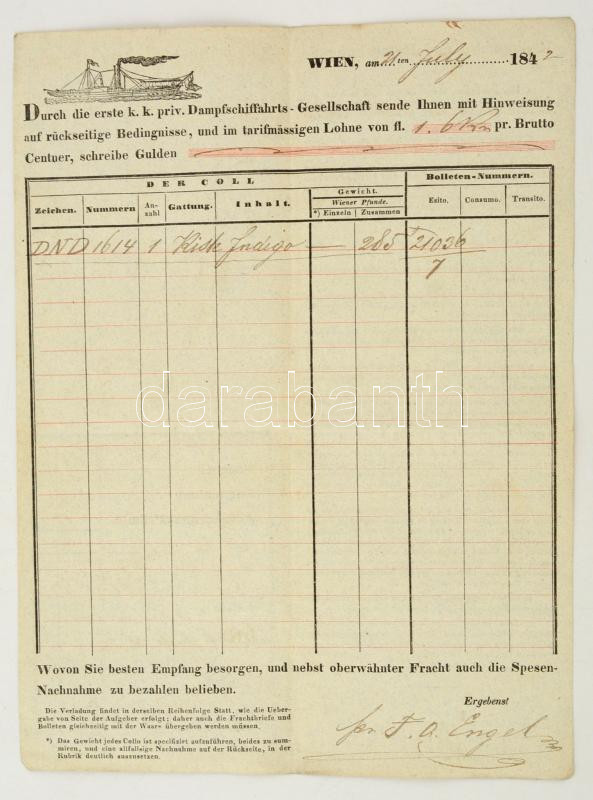 WIEN, am 21ten July 1842
Durch die erste k. k. priv. Dampfschiffahrts-Gesellschaft sende Ihnen mit Hinweisung
auf rückseitige Bedingnisse, und im tarifmässigen Lohne von fl. 1. 6 Xr pr. Brutto
Centuer, schreibe Gulden
DER COLL
Gewicht.
Bolleten-Nummern.
Zeichen. Nummern An-zahl Gattung. Inhalt. Wiener Pfunde. Esito. Consumo. Transito.
*) Einzeln Zusammen
DND 1614 1 Kiste Indigo — 285 21036
7
darabanth
Wovon Sie besten Empfang besorgen, und nebst oberwähnter Fracht auch die Spesen-
Nachnahme zu bezahlen belieben.
Ergebenst
Die Verladung findet in derselben Reihenfolge Statt, wie die Ueber-
gabe von Seite der Aufgeber erfolgt; daher auch die Frachtbriefe und
Bolleten gleichzeitig mit der Waare übergeben werden müssen.
*) Das Gewicht jedes Collo ist specifizirt aufzuführen, beides zu sum-
miren, und eine allfallsige Nachnahme auf der Rückseite, in der
Rubrik deutlich auszusetzen.
pr F. A. Engel